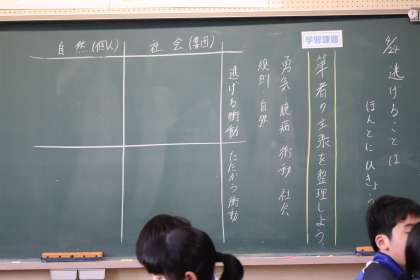 9/24 逃げることは
ほんとにひきょう
学習課題
筆者の主張を整理しよう。
勇気 臆病 衝動 社会
規則 自然
逃げる衝動
たたかう衝動
社会(集団)
自然(個人)